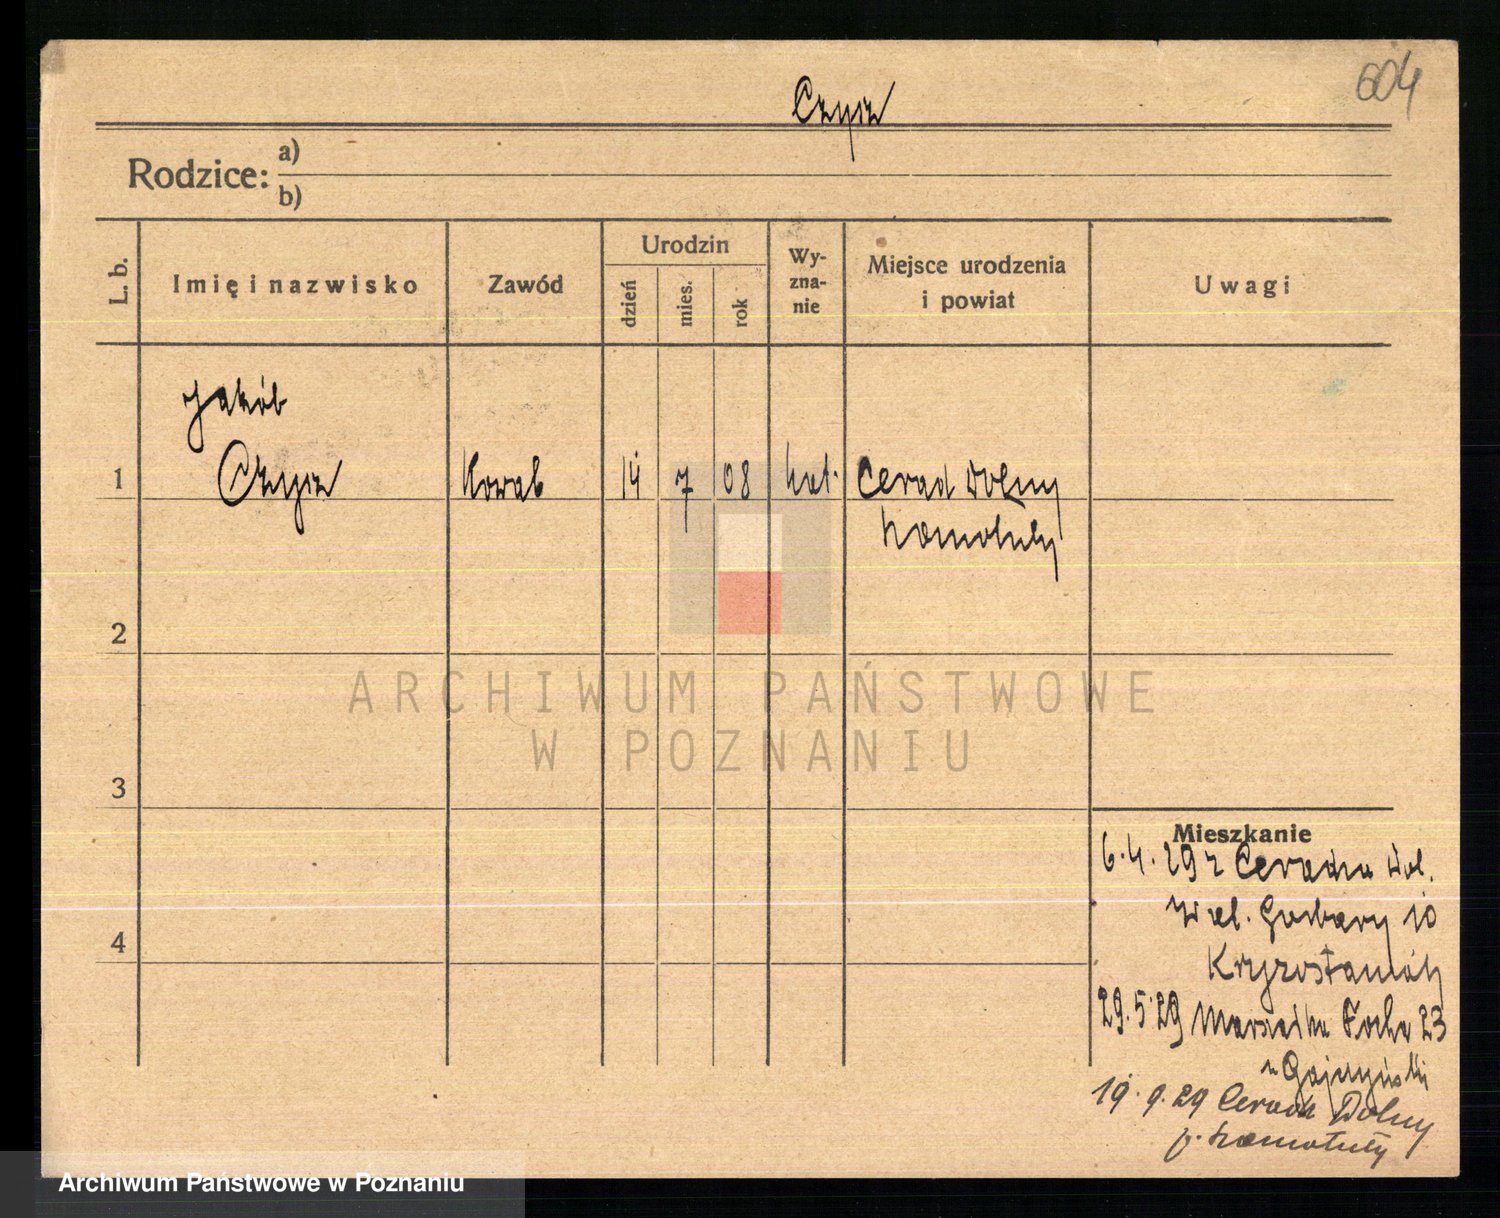 604
Czyż
Rodzice: a)
b)
L. b.
Imię i nazwisko
Zawód
Urodzin
dzień
mies.
rok
Wy-
zna-
nie
Miejsce urodzenia
i powiat
Uwagi
Jakób
1 Czyż Kowal 14 7 08 kat. Cerad Dolny
Szamotuły
2
3
4
Mieszkanie
6.4.29 z Ceradza Dol.
W. Garbary 10
29.5.29 Marszałka Focha 23
19.9.29 Cerad Dolny
p. Szamotuły
ARCHIWUM PAŃSTWOWE
W POZNANIU
Archiwum Państwowe w Poznaniu